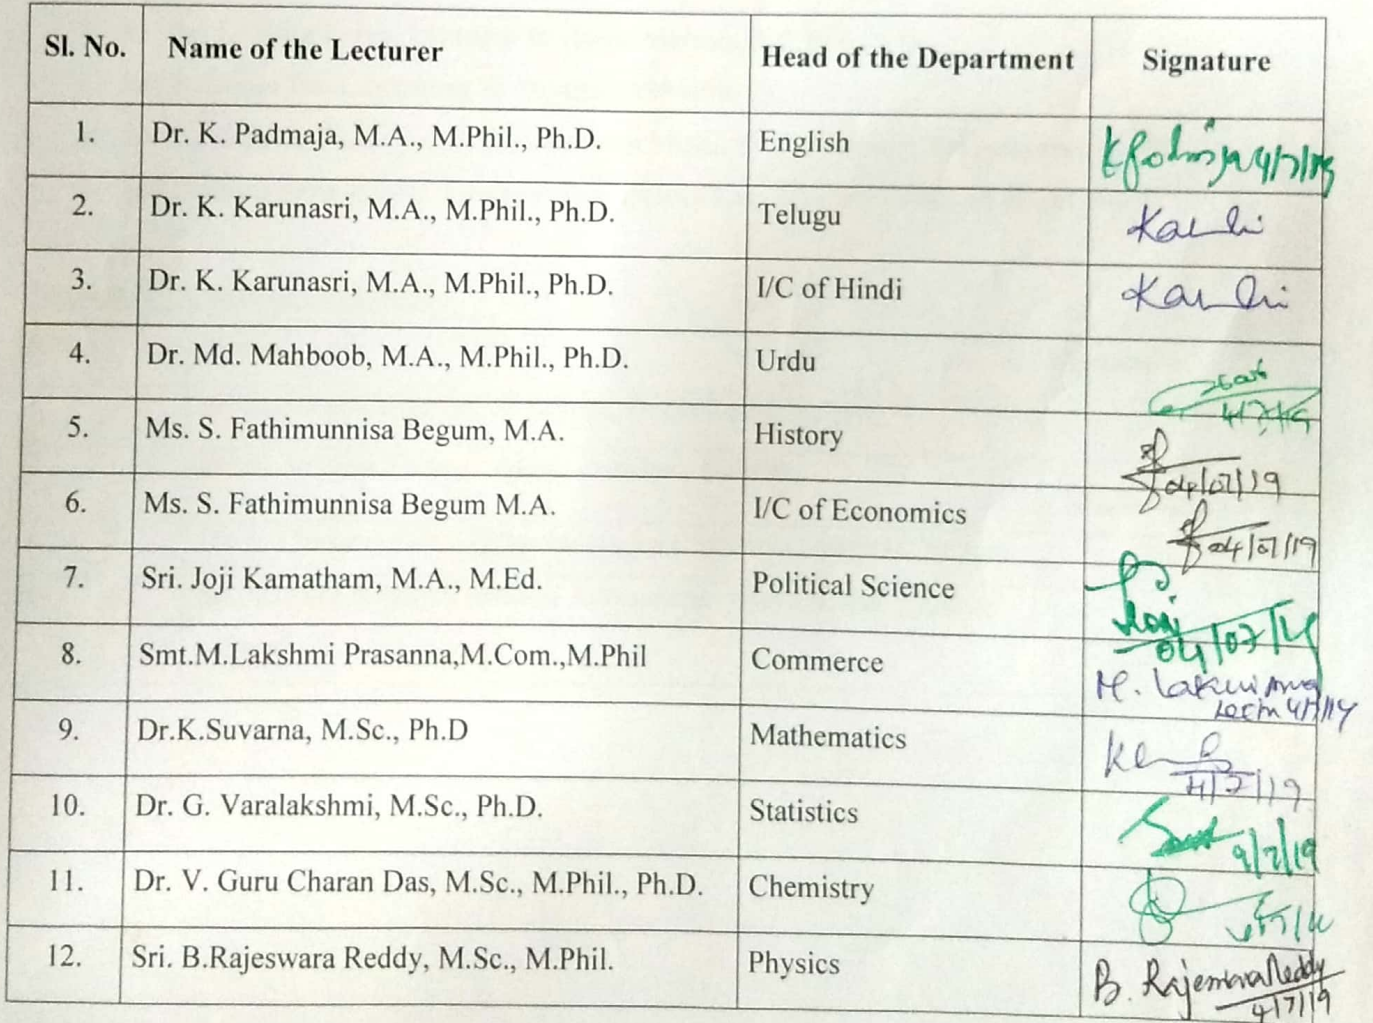 Sl. No. Name of the Lecturer Head of the Department Signature
1. Dr. K. Padmaja, M.A., M.Phil., Ph.D. English 4/7/19
2. Dr. K. Karunasri, M.A., M.Phil., Ph.D. Telugu
3. Dr. K. Karunasri, M.A., M.Phil., Ph.D. I/C of Hindi
4. Dr. Md. Mahboob, M.A., M.Phil., Ph.D. Urdu
4/7/19
5. Ms. S. Fathimunnisa Begum, M.A. History
04/07/19
6. Ms. S. Fathimunnisa Begum M.A. I/C of Economics
04/07/19
7. Sri. Joji Kamatham, M.A., M.Ed. Political Science
04/07/19
8. Smt.M.Lakshmi Prasanna,M.Com.,M.Phil Commerce M.
9. Dr.K.Suvarna, M.Sc., Ph.D Mathematics
4/7/19
10. Dr. G. Varalakshmi, M.Sc., Ph.D. Statistics 9/7/19
11. Dr. V. Guru Charan Das, M.Sc., M.Phil., Ph.D. Chemistry
12. Sri. B.Rajeswara Reddy, M.Sc., M.Phil. Physics B. Rajeswara Reddy
4/7/19